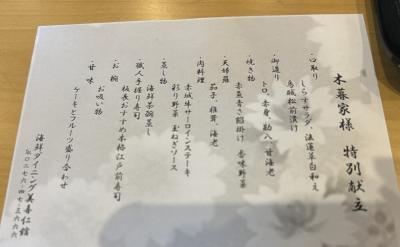 木暮家様 特別献立
・口取り
しらすサラダ、法蓮草白和え
烏賊松前漬け
・御造り
トロ、赤身、勘八、甘海老
・焼き物
赤魚青さ餡掛け 香味野菜
・天婦羅
茄子、椎茸、海老
・肉料理
赤城牛サーロインステーキ
彩り野菜 玉ねぎソース
・蒸し物
海鮮茶碗蒸し
・職人手握り寿司
板長おすすめ本格江戸前寿司
・お椀
お吸い物
・甘味
ケーキとフルーツ盛り合わせ
海鮮ダイニング美喜仁館